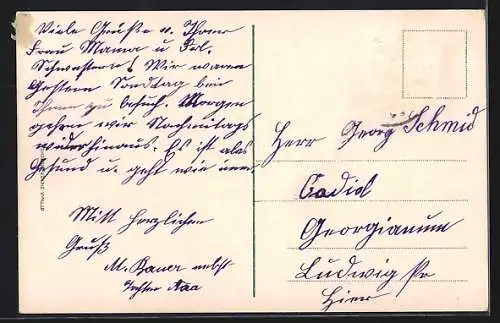 Viele Grüße u. Ihrer
Frau Mama u Frl.
Schwestern! Wir waren
Gestern Sonntag bei
Ihnen zu besuch. Morgen
gehen wir Nachmitags
wiederhinaus. Es ist alas
Gesund u. geht wie imm.
Mitt herzlichen
Gruß
M. Bauer nebst
Tochter
Herr Georg Schmid
Cadid
Georgianum
Ludwig Str
Hier